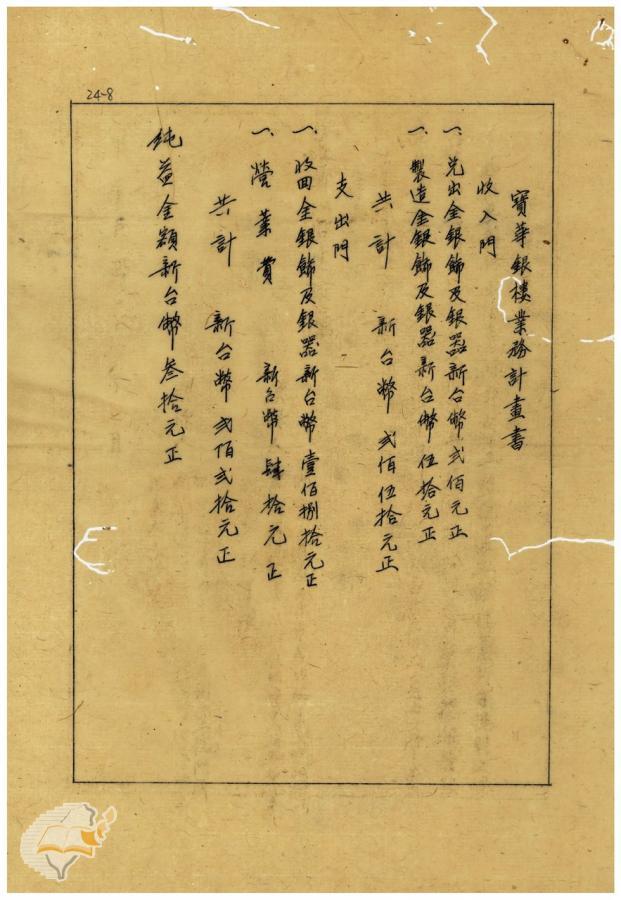 24-8
寶華銀樓業務計畫書
收入門
一、兌出金銀飾及銀器新台幣貳佰元正
一、製造金銀飾及銀器新台幣伍拾元正
共計 新台幣貳佰伍拾元正
支出門
一、收回金銀飾及銀器新台幣壹佰捌拾元正
一、營業費 新台幣肆拾元正
共計 新台幣貳佰貳拾元正
純益金額新台幣叁拾元正